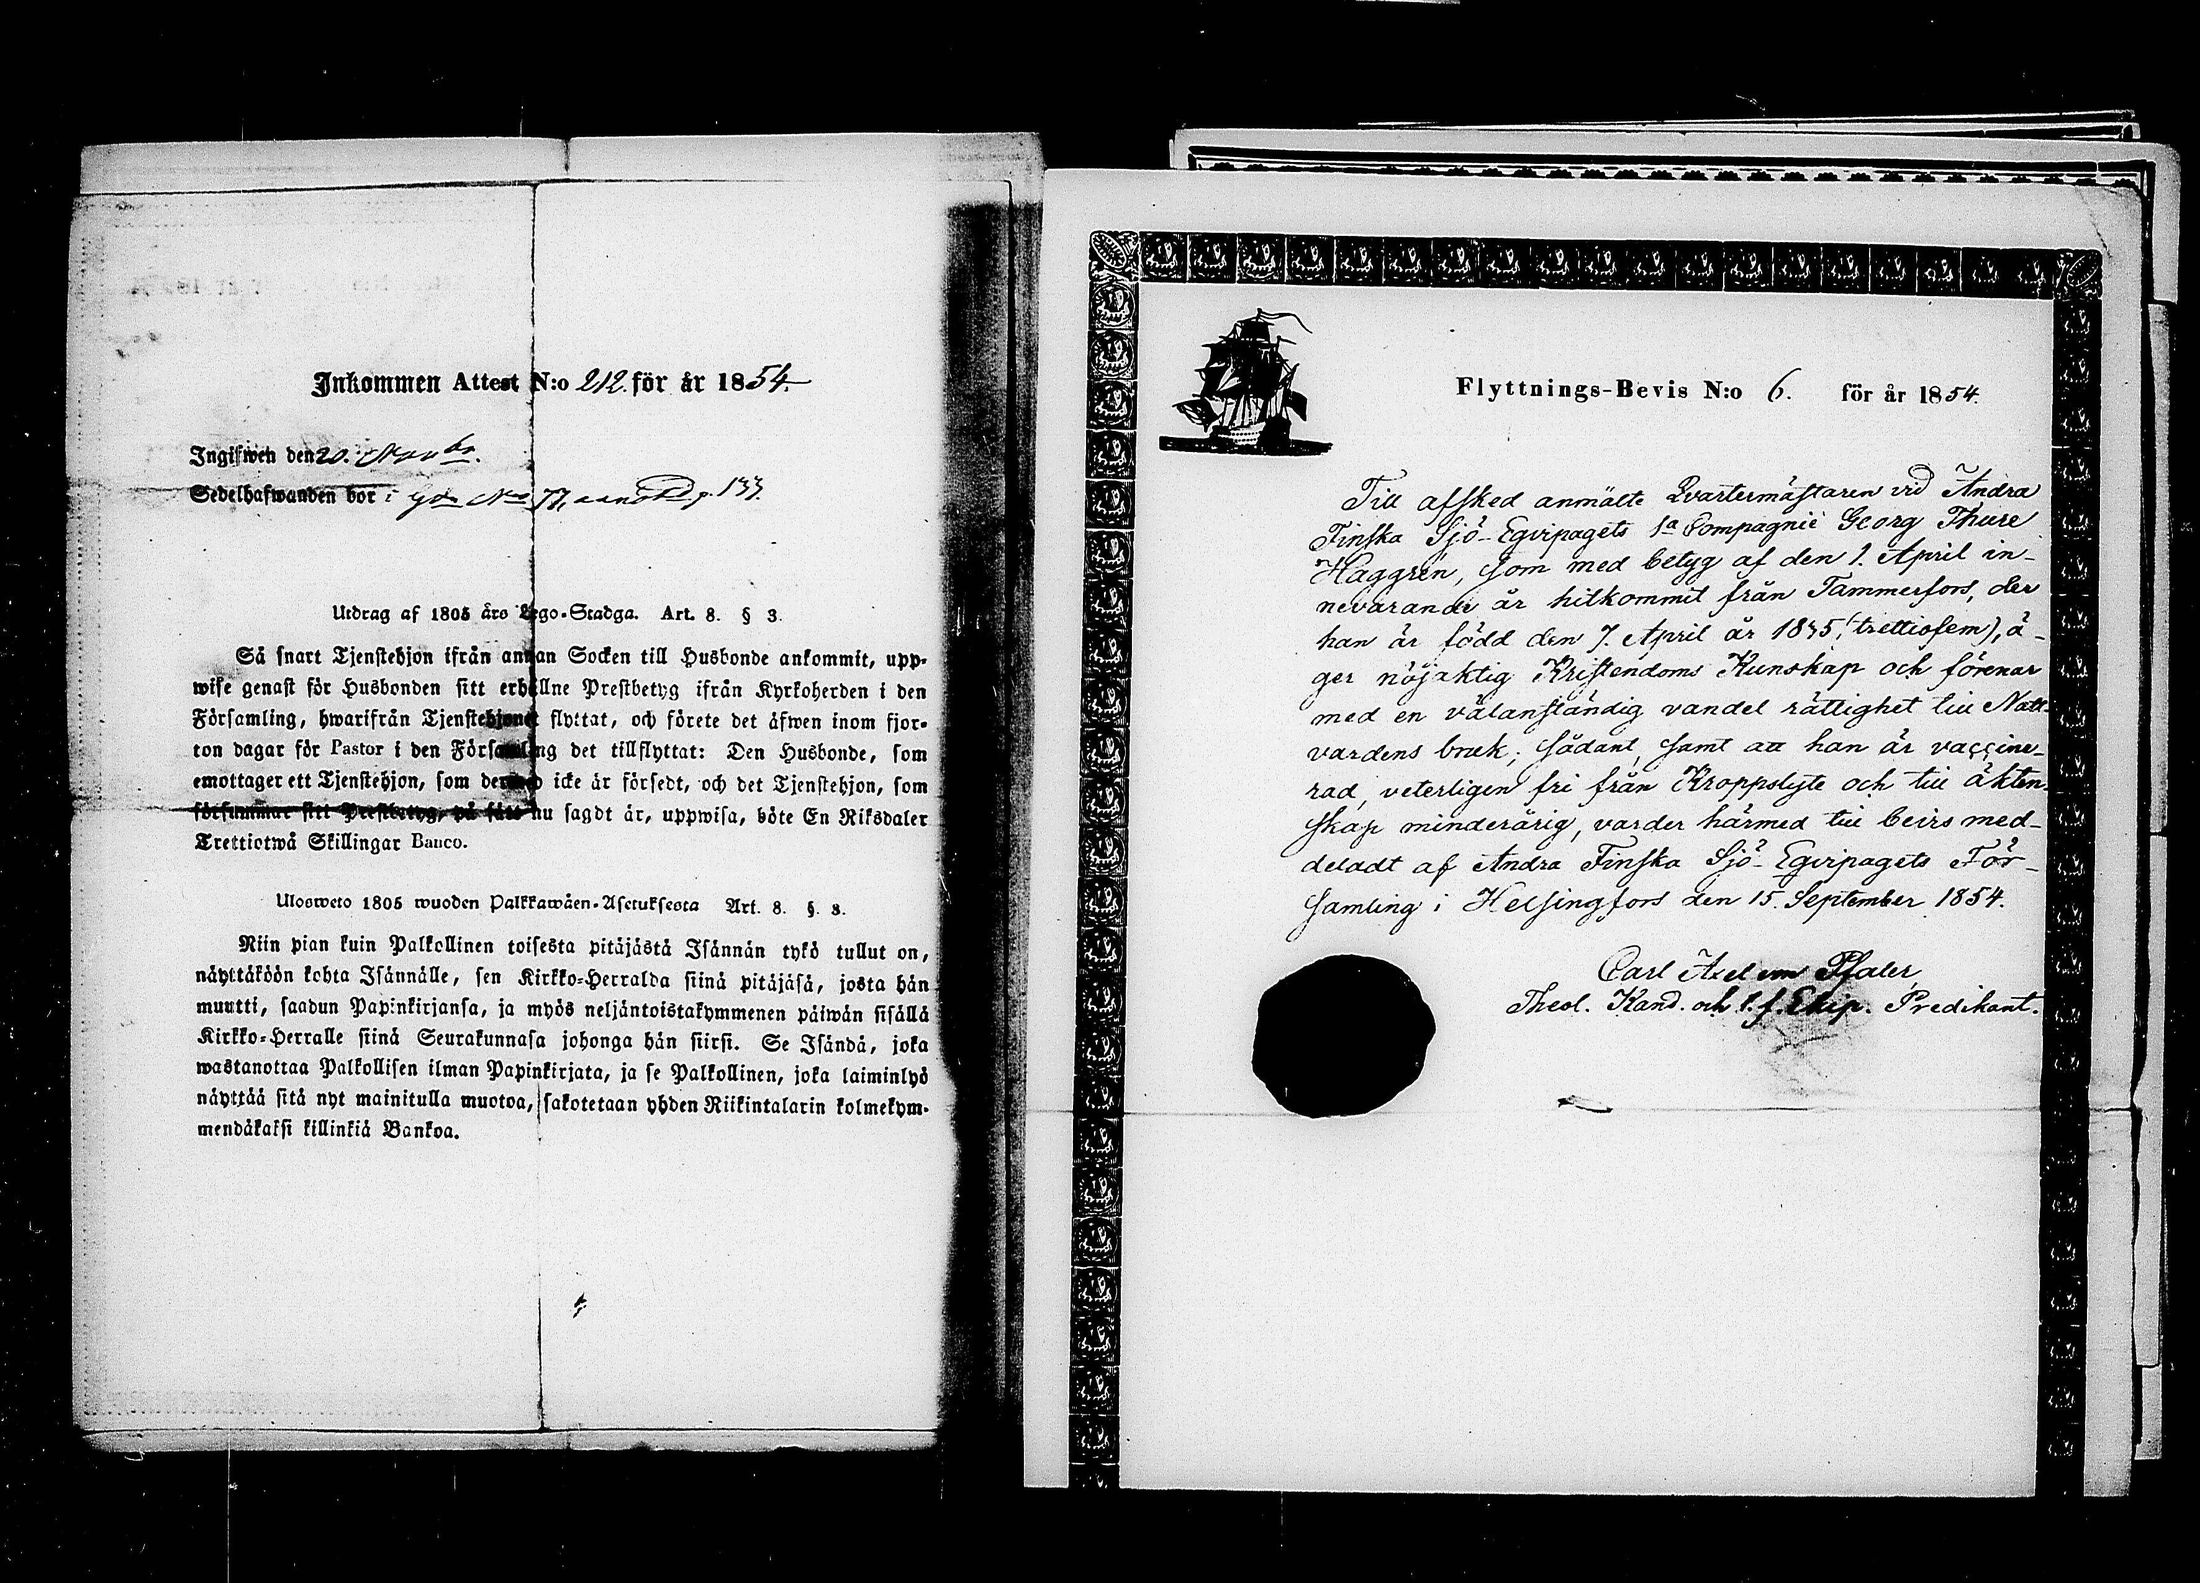 Inkommen Attest N:o 212. för år 1854.
Ingifwen den 20. Novbr.
Sedelhafwanden bor i Gdn No 77, p. 133.
Utdrag af 1805 års Lego-Stadga. Art. 8. § 3.
Så snart Tjenstehjon ifrån annan Socken till Husbonde ankommit, upp-
wise genast för Husbonden sitt erhållne Prestbetyg ifrån Kyrkoherden i den
Församling, hwarifrån Tjenstehjonet flyttat, och förete det äfwen inom fjor-
ton dagar för Pastor i den Församling det tillflyttat: Den Husbonde, som
emottager ett Tjenstehjon, som dermed icke är försedt, och det Tjenstehjon, som
försummar sitt Prestbetyg, på sätt nu sagdt är, uppwisa, böte En Riksdaler
Trettiotwå Skillingar Banco.
Ulosweto 1805 wuoden Palkkawäen-Asetuksesta Art. 8. §. 3.
Niin pian kuin Palkollinen toisesta pitäjästä Isännän tykö tullut on,
näyttäköön kohta Isännälle, sen Kirkko-Herralda siinä pitäjäsä, josta hän
muutti, saadun Papinkirjansa, ja myös neljäntoistakymmenen päiwän sisällä
Kirkko-Herralle siinä Seurakunnasa johonga hän siirsi. Se Isändä, joka
wastanottaa Palkollisen ilman Papinkirjata, ja se Palkollinen, joka laiminlyö
näyttää sitä nyt mainitulla muotoa, sakotetaan yhden Riikintalarin kolmekym-
mendäkaksi killinkiä Bankoa.
Flyttnings-Bevis N:o 6. för år 1854.
Till afsked anmälte Qvartermästaren vid Andra
Finska Sjö-Eqvipagets 1a Compagnie Georg Thure
Haggren, som med betyg af den 1. April in-
nevarande år hitkommit från Tammerfors, der
han är född den 7. April år 1835, (trettiofem), ä-
ger nöjaktig Kristendoms Kunskap och förenar
med en välanständig vandel rättighet till Natt-
vardens bruk; sådant, samt att han är vaccine-
rad, veterligen fri från Kroppslyte och till äkten-
skap minderårig, varder härmed till bevis med-
deladt af Andra Finska Sjö-Eqvipagets För-
samling i Helsingfors den 15. September 1854.
Carl Axel von Pfaler,
Theol. Kand. och t. f. Ekip. Predikant.